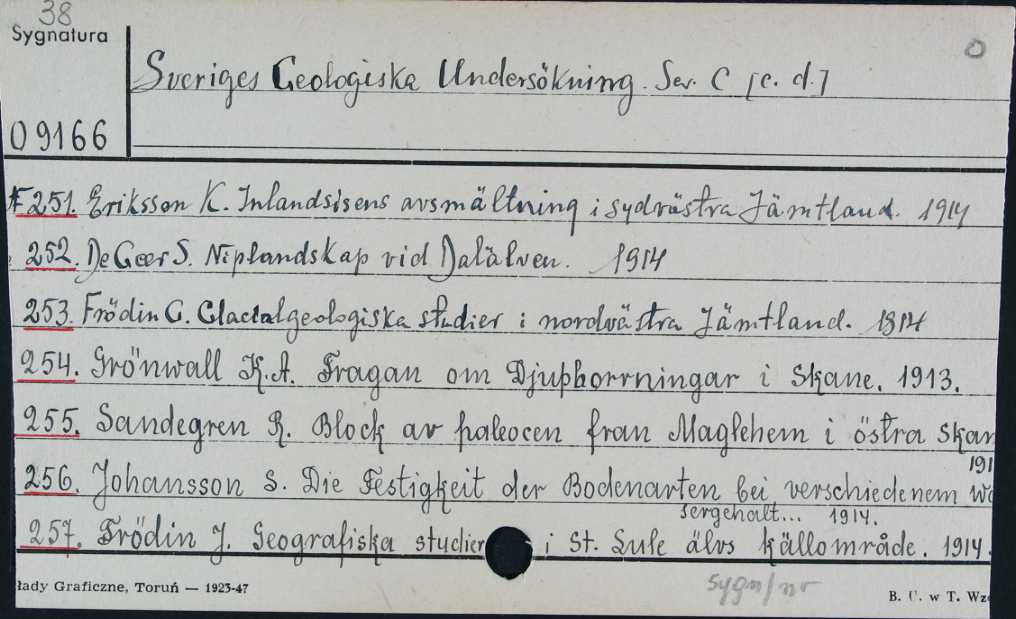 38
Sygnatura
O 9166
Sveriges Geologiska Undersökning. Ser. C [c. d.]
O
251. Eriksson K. Inlandsisens avsmältning i sydvästra Jämtland. 1914
252. De Geer S. Niplandskap vid Dalälven. 1914
253. Frödin G. Glacialgeologiska studier i nordvästra Jämtland. 1914
254. Grönwall K. A. Fragan om Djuphorrningar i Skane. 1913.
255. Sandegren R. Block av paleocen fran Maglehem i östra Skan
191
256. Johansson S. Die Festigkeit der Bodenarten bei verschiedenem Wa
sergehalt... 1914.
257. Frödin J. Geografiska studier i St. Lule älvs källområde. 1914.
łady Graficzne, Toruń — 1923-47
sygn/nr
B. U. w T. Wzó